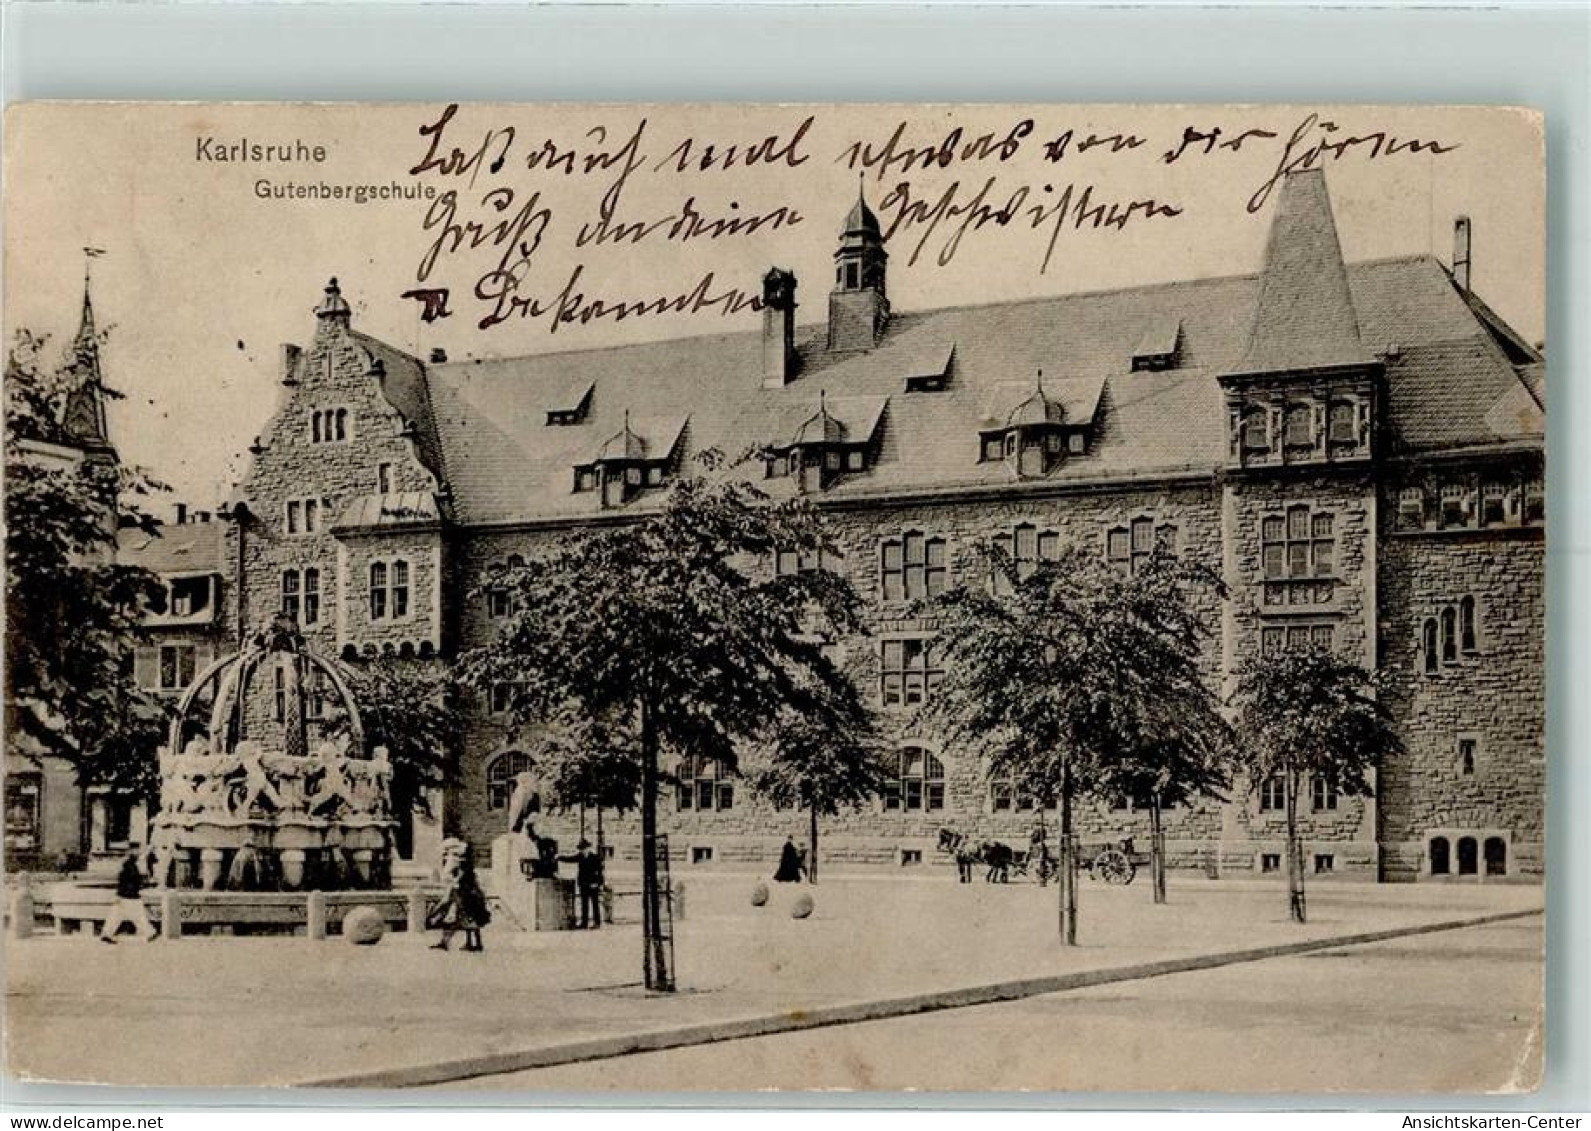 Karlsruhe
Gutenbergschule
Laß auch mal etwas von dir hören
Gruß an deine Geschwistern
u Bekannten
delcampe.net
Ansichtskarten-Center